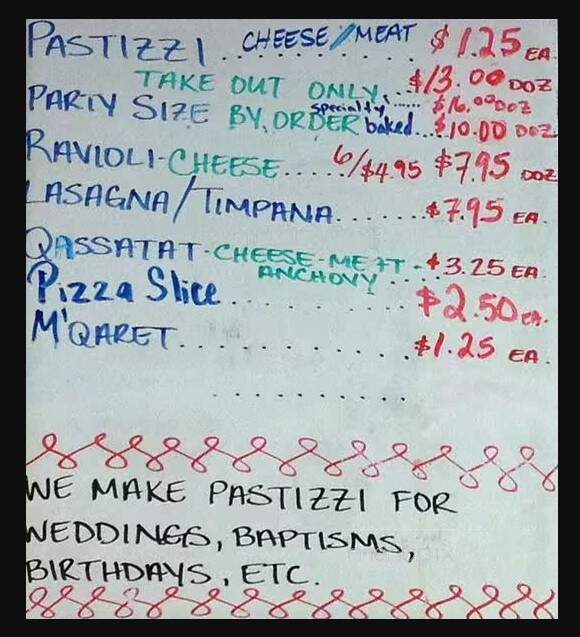 PASTIZZI .. CHEESE//MEAT $1.25 EA
TAKE OUT ONLY.. $13.00 DOZ
specialty ...... $16.00 DOZ
PARTY SIZE BY ORDER baked... $10.00 DOZ
RAVIOLI-CHEESE..... 6/$4.95 $7.95 DOZ
LASAGNA/TIMPANA....... $7.95 EA.
QASSATAT-CHEESE-MEAT-$3.25 EA.
ANCHOVY...
Pizza Slice .......... $2.50 ea.
M'QARET............ $1.25 EA.
............
WE MAKE PASTIZZI FOR
WEDDINGS, BAPTISMS,
BIRTHDAYS, ETC.